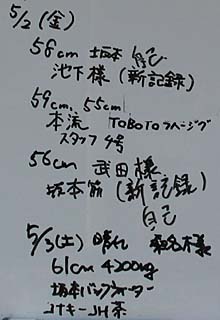 5/2(金)
58cm 坂本 自己
池下様(新記録)
59cm、55cm
本流 TOBOTOフィージング
スタッフ4号
56cm 武田様
坂本筋(新記録)
自己
5/3(土) 晴れ 桑名様
61cm 4200kg
坂本バックウォーター
JHキーJH茶